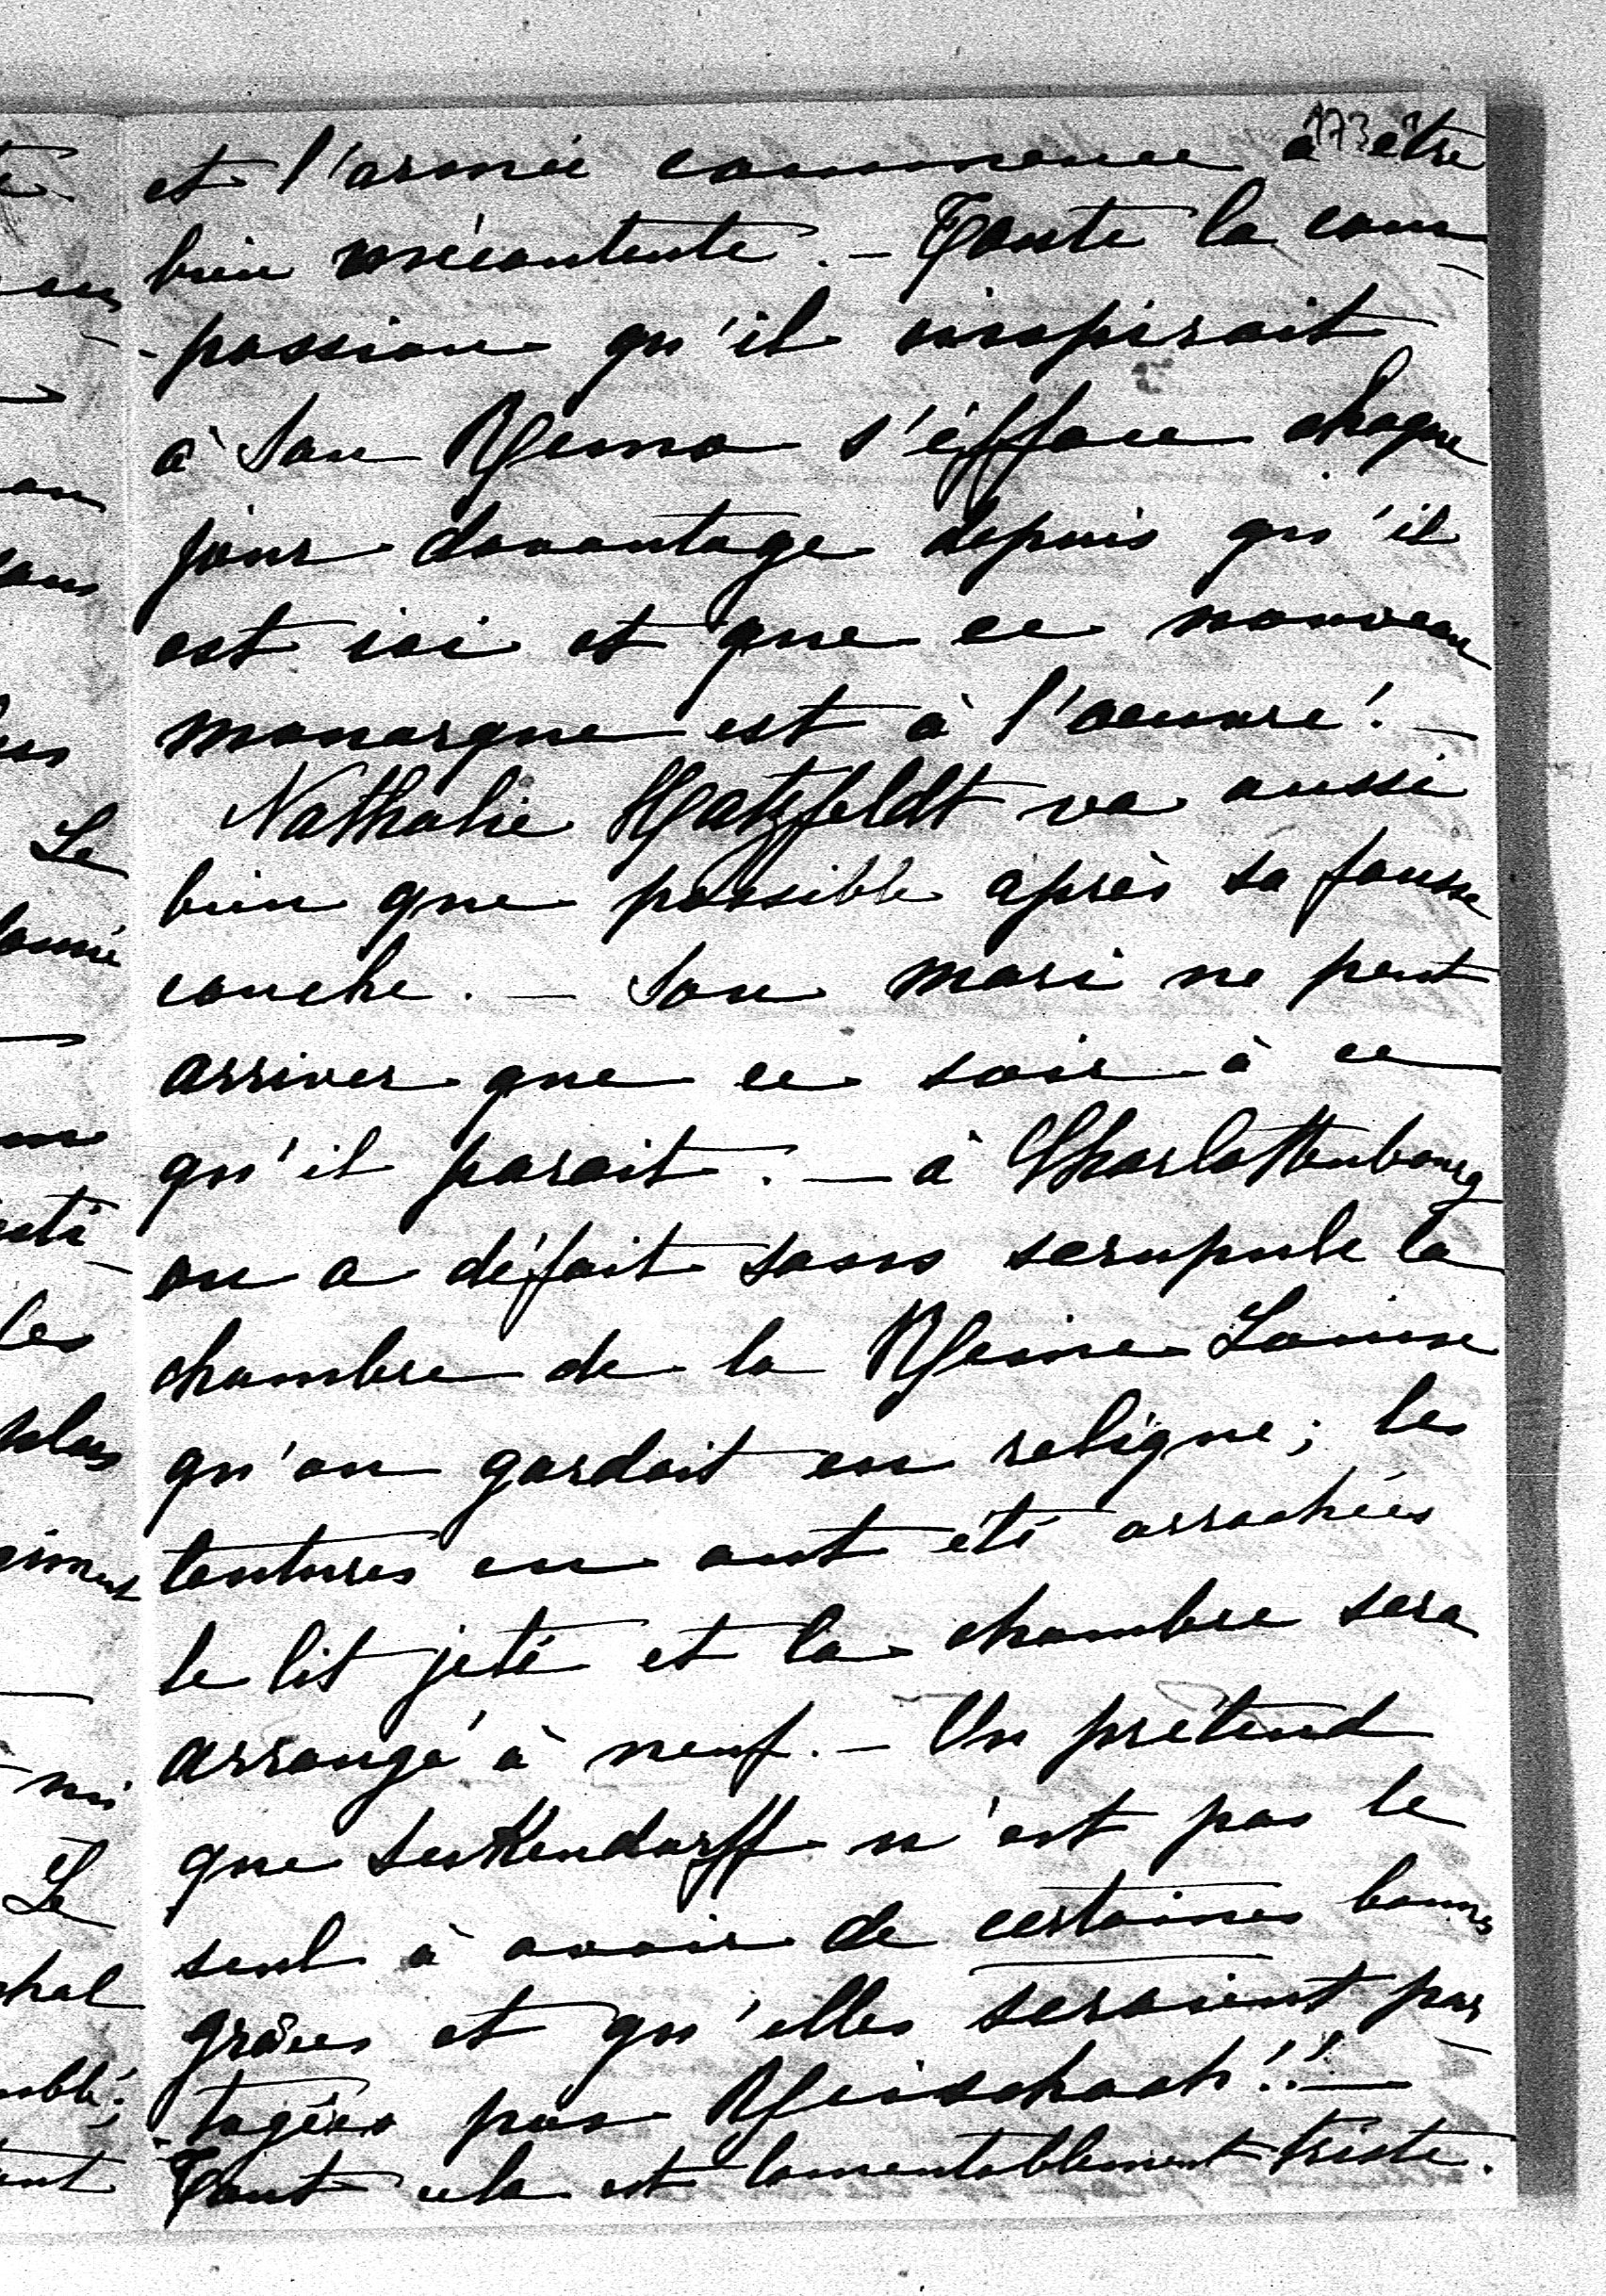 173
et l'armée commence à être
bien mécontente. – Toute la com-
-passion qu'il inspirait
à San Remo s'éfface chaque
jour davantage depuis qu'il
est ici et que ce nouveau
monarque est à l'oeuvre! –
Nathalie Hatzfeldt va aussi
bien que possible après sa fausse
couche. – Son mari ne peut
arriver que ce soir à ce
qu'il parait. – à Charlottenbourg
on a défait sans scrupule la
chambre de la Reine Louise
qu'on gardait en relique; les
tentures en ont été arrachées
le lit jeté et la chambre sera
arrangé à neuf. – On prétend
que Seckendorff n'est pas le
seul à avoir de certaines bonnes
grâces et qu'elles seraient par-
-tagées par Reischach!! –
Tout cela est lamentablement triste.